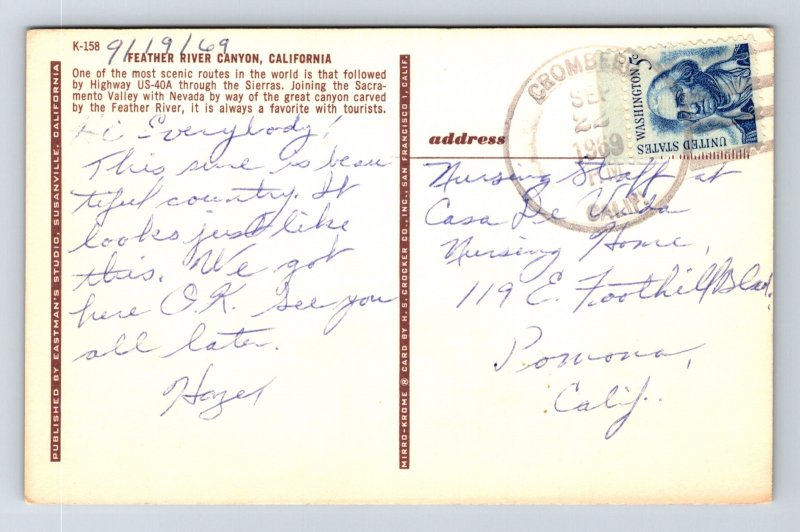 K-158
9/19/69
FEATHER RIVER CANYON, CALIFORNIA
One of the most scenic routes in the world is that followed
by Highway US-40A through the Sierras. Joining the Sacra-
mento Valley with Nevada by way of the great canyon carved
by the Feather River, it is always a favorite with tourists.
Hi Everybody!
This sure is beau
tiful country. It
looks just like
this. We got
here O.K. See you
all later.
Hazel
PUBLISHED BY EASTMAN'S STUDIO, SUSANVILLE, CALIFORNIA
MIRRO-KROME ® CARD BY H. S. CROCKER CO., INC., SAN FRANCISCO 1, CALIF.
address
Nursing Staff at
Casa De Vida
Nursing Home,
119 E. Foothill Blvd.
Pomona,
Calif.
CROMBERG
SEP
22
1969
PM
CALIF.
WASHINGTON 5c
UNITED STATES